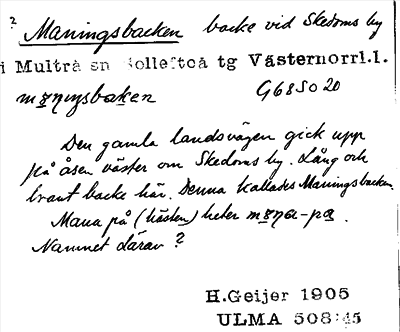 ? Maningsbacken backe vid Skedoms by
i Multrå sn Sollefteå tg Västernorrl.l.
mɐŋıŋsbaken G68So20
Den gamla landsvägen gick upp
på åsen väster om Skedoms by. Lång och
brant backe här. Denna kallades Maningsbacken.
Mana på (hästen) heter
Namnet därav?
H.Geijer 1905
ULMA 508:45